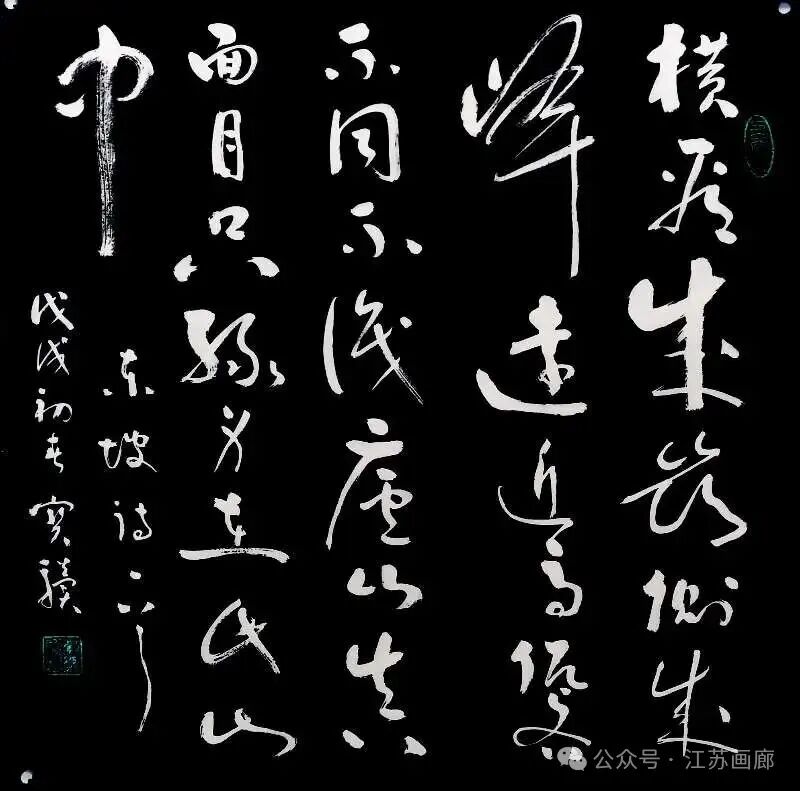 横看成岭側成
峰遠近高低各
不同不識廬山真
面目只緣身在此山
中
东坡诗
戊戌初春寶
公众号·江苏画廊